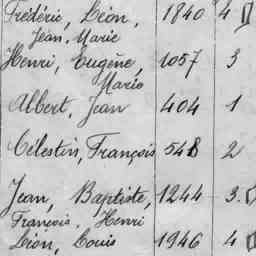 Frédéric, Léon, 1840 4
Jean, Marie
Henri, Eugène, 1057 3
Mario
Albert, Jean 404 1
Célestin, François 548 2
Jean, Baptiste, 1244 3.
François, Henri
Léon, Louis 1946 4